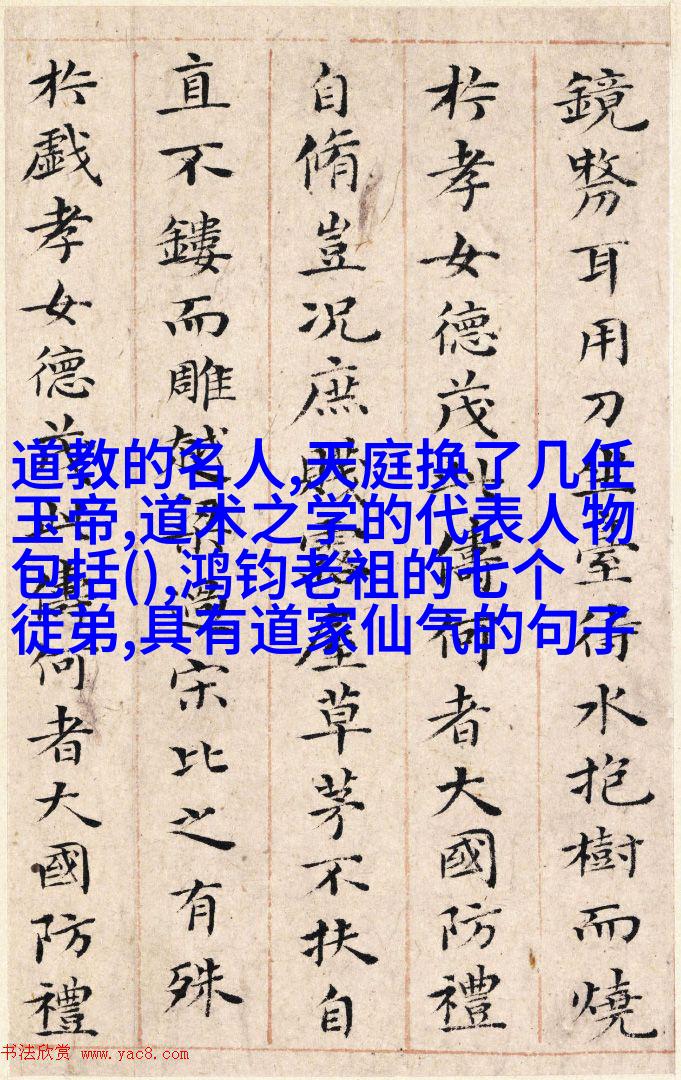 鏡剺耳用刀坐室行水抱樹而燒
於孝女德茂此儔何者大國防禮
自脩豈况庶賤露屋草茅不扶自
直不鏤而雕越梁過宋比之有殊
於戲孝女德茂此儔何者大國防禮
道教的名人,天庭换了几任
玉帝,道术之学的代表人物
包括(),鸿钧老祖的七个
徒弟,具有道家仙气的句子
书法欣赏 www.yac8.com